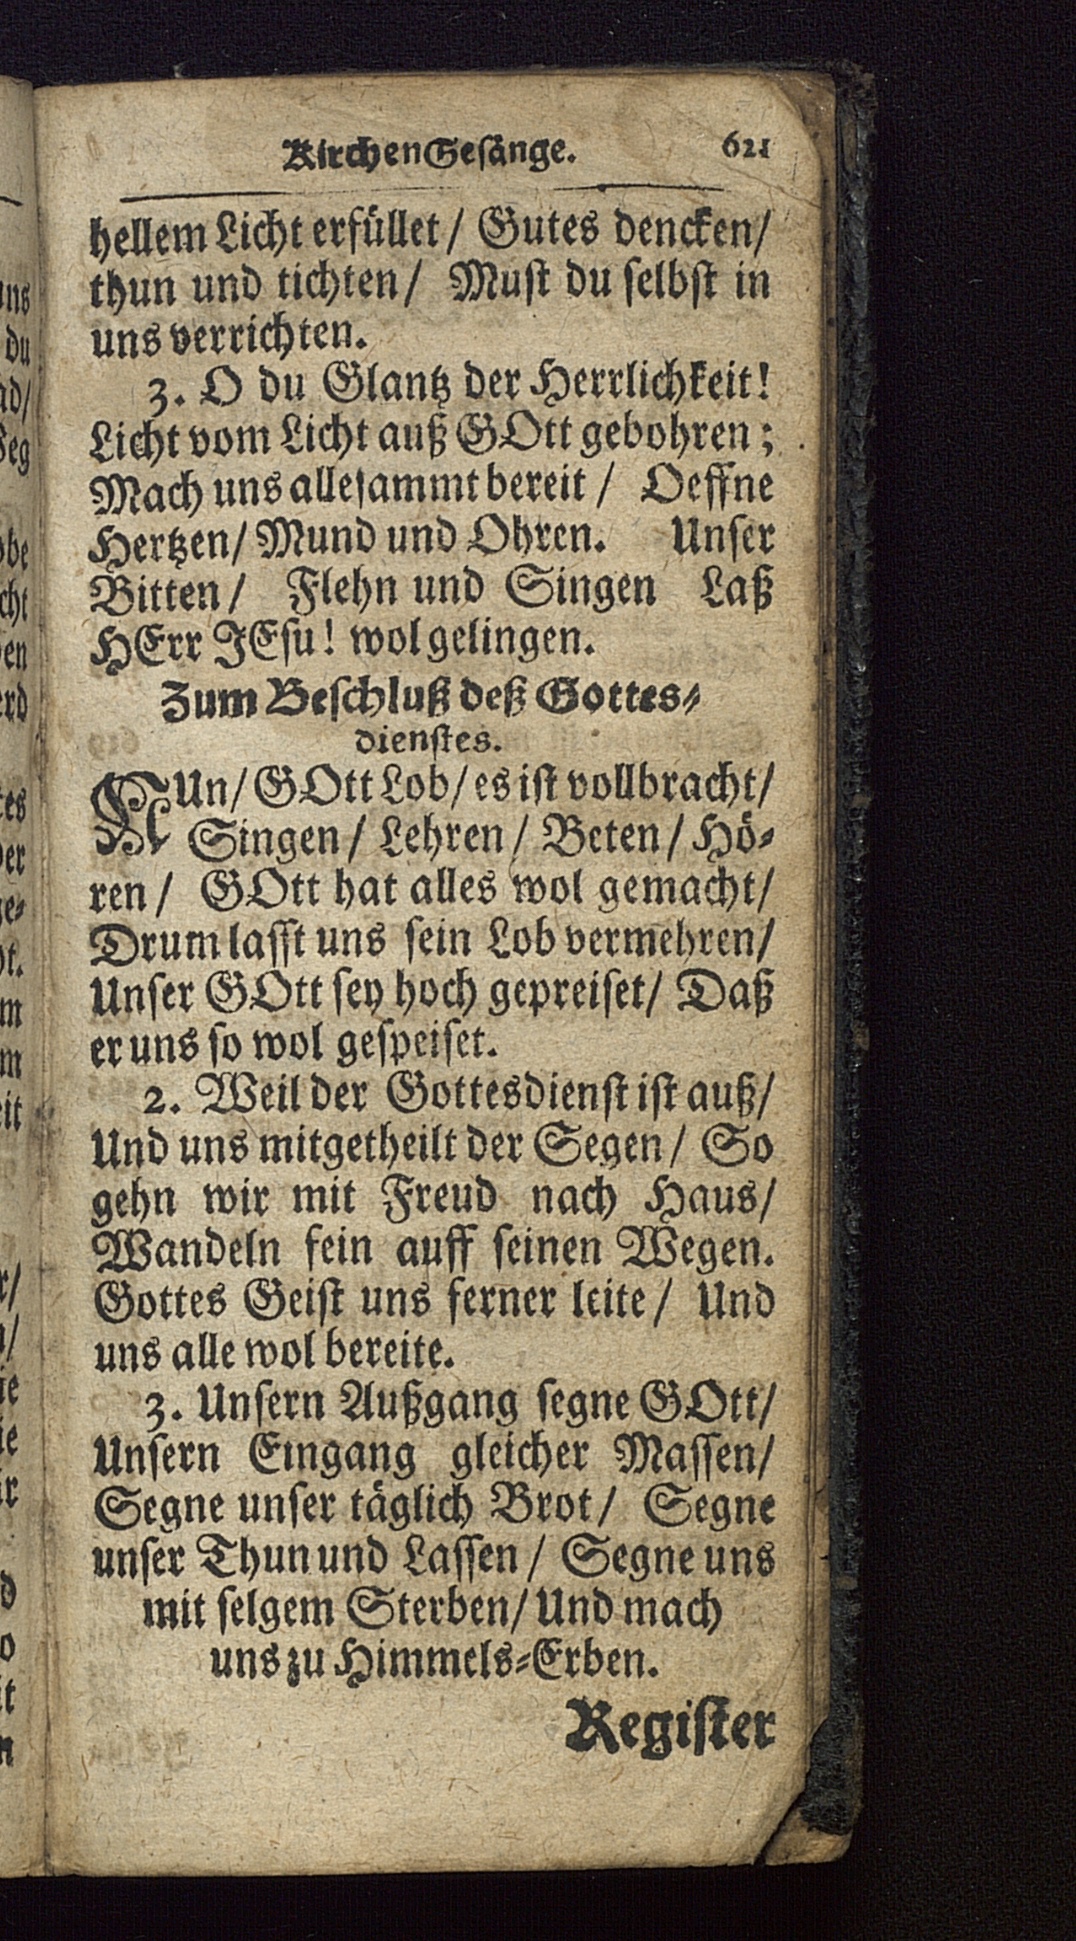 KirchenGesänge. 621
hellem Licht erfüllet/ Gutes dencken/
thun und tichten/ Must du selbst in
uns verrichten.
3. O du Glantz der Herrlichkeit!
Licht vom Licht auß GOtt gebohren;
Mach uns allesammt bereit/ Oeffne
Hertzen/ Mund und Ohren. Unser
Bitten/ Flehn und Singen Laß
HErr JEsu! wol gelingen.
Zum Beschluß deß Gottes-
dienstes.
NUn/ GOtt Lob/ es ist vollbracht/
Singen/ Lehren/ Beten/ Hö-
ren/ GOtt hat alles wol gemacht/
Drum lasst uns sein Lob vermehren/
Unser GOtt sey hoch gepreiset/ Daß
er uns so wol gespeiset.
2. Weil der Gottesdienst ist auß/
Und uns mitgetheilt der Segen/ So
gehn wir mit Freud nach Haus/
Wandeln fein auff seinen Wegen.
Gottes Geist uns ferner leite/ Und
uns alle wol bereite.
3. Unsern Außgang segne GOtt/
Unsern Eingang gleicher Massen/
Segne unser täglich Brot/ Segne
unser Thun und Lassen/ Segne uns
mit selgem Sterben/ Und mach
uns zu Himmels-Erben.
Register